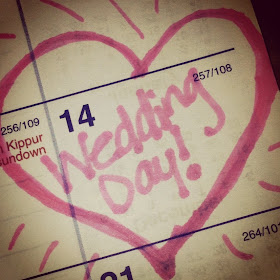 257/108
256/109
14
n Kippur
undown
Wedding
Day!
264/101
21